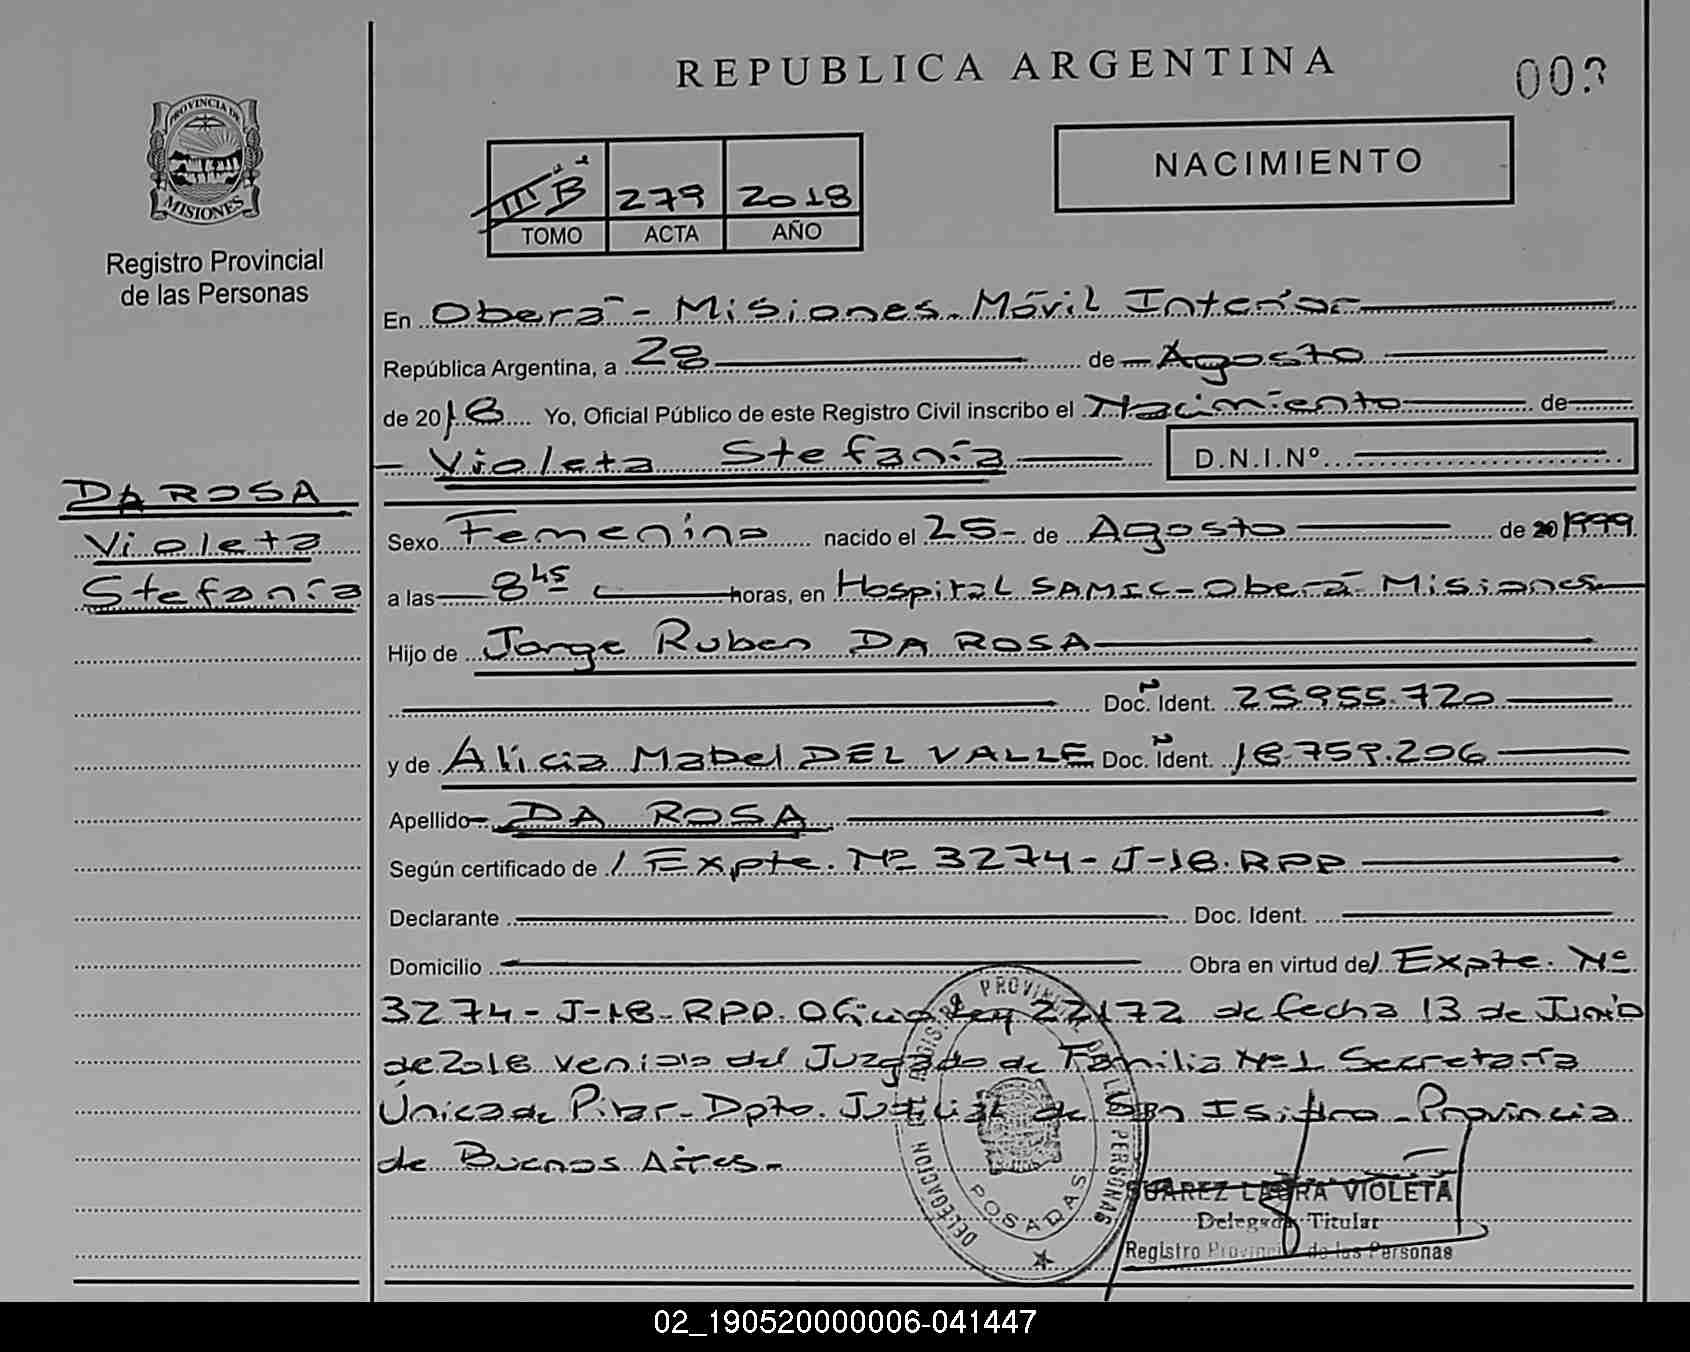 REPUBLICA ARGENTINA
003
PROVINCIA DE
MISIONES
Registro Provincial
de las Personas
NACIMIENTO
III B 279 2018
TOMO ACTA AÑO
En Oberá - Misiones. Móvil Interior
República Argentina, a 28 de Agosto
de 2018 Yo, Oficial Público de este Registro Civil inscribo el Nacimiento de
Violeta Stefanía D.N.I.Nº
DA ROSA
Violeta
Stefanía
Sexo Femenino nacido el 25 - de Agosto de 20 1999
a las 8 45 horas, en Hospital SAMIC - Oberá - Misiones
Hijo de Jorge Ruben DA ROSA
Doc. Ident. 25.955.720
y de Alicia Mabel DEL VALLE Doc. Ident. 18.759.206
Apellido DA ROSA
Según certificado de / Expte. Nº 3274 - J - 18. RPP
Declarante Doc. Ident.
Domicilio Obra en virtud de / Expte. Nº
3274 - J - 18 - RPP. Oficio Ley 22172 de fecha 13 de Junio
de 2018 venido del Juzgado de Familia Nº 1 Secretaría
Única de Pilar - Dpto. Judicial de San Isidro - Provincia
de Buenos Aires. -
DELEGACION REGISTRO PROVINCIAL DE LAS PERSONAS
POSADAS
SUAREZ LAURA VIOLETA
Delegada Titular
Registro Provincial de las Personas
02_190520000006-041447